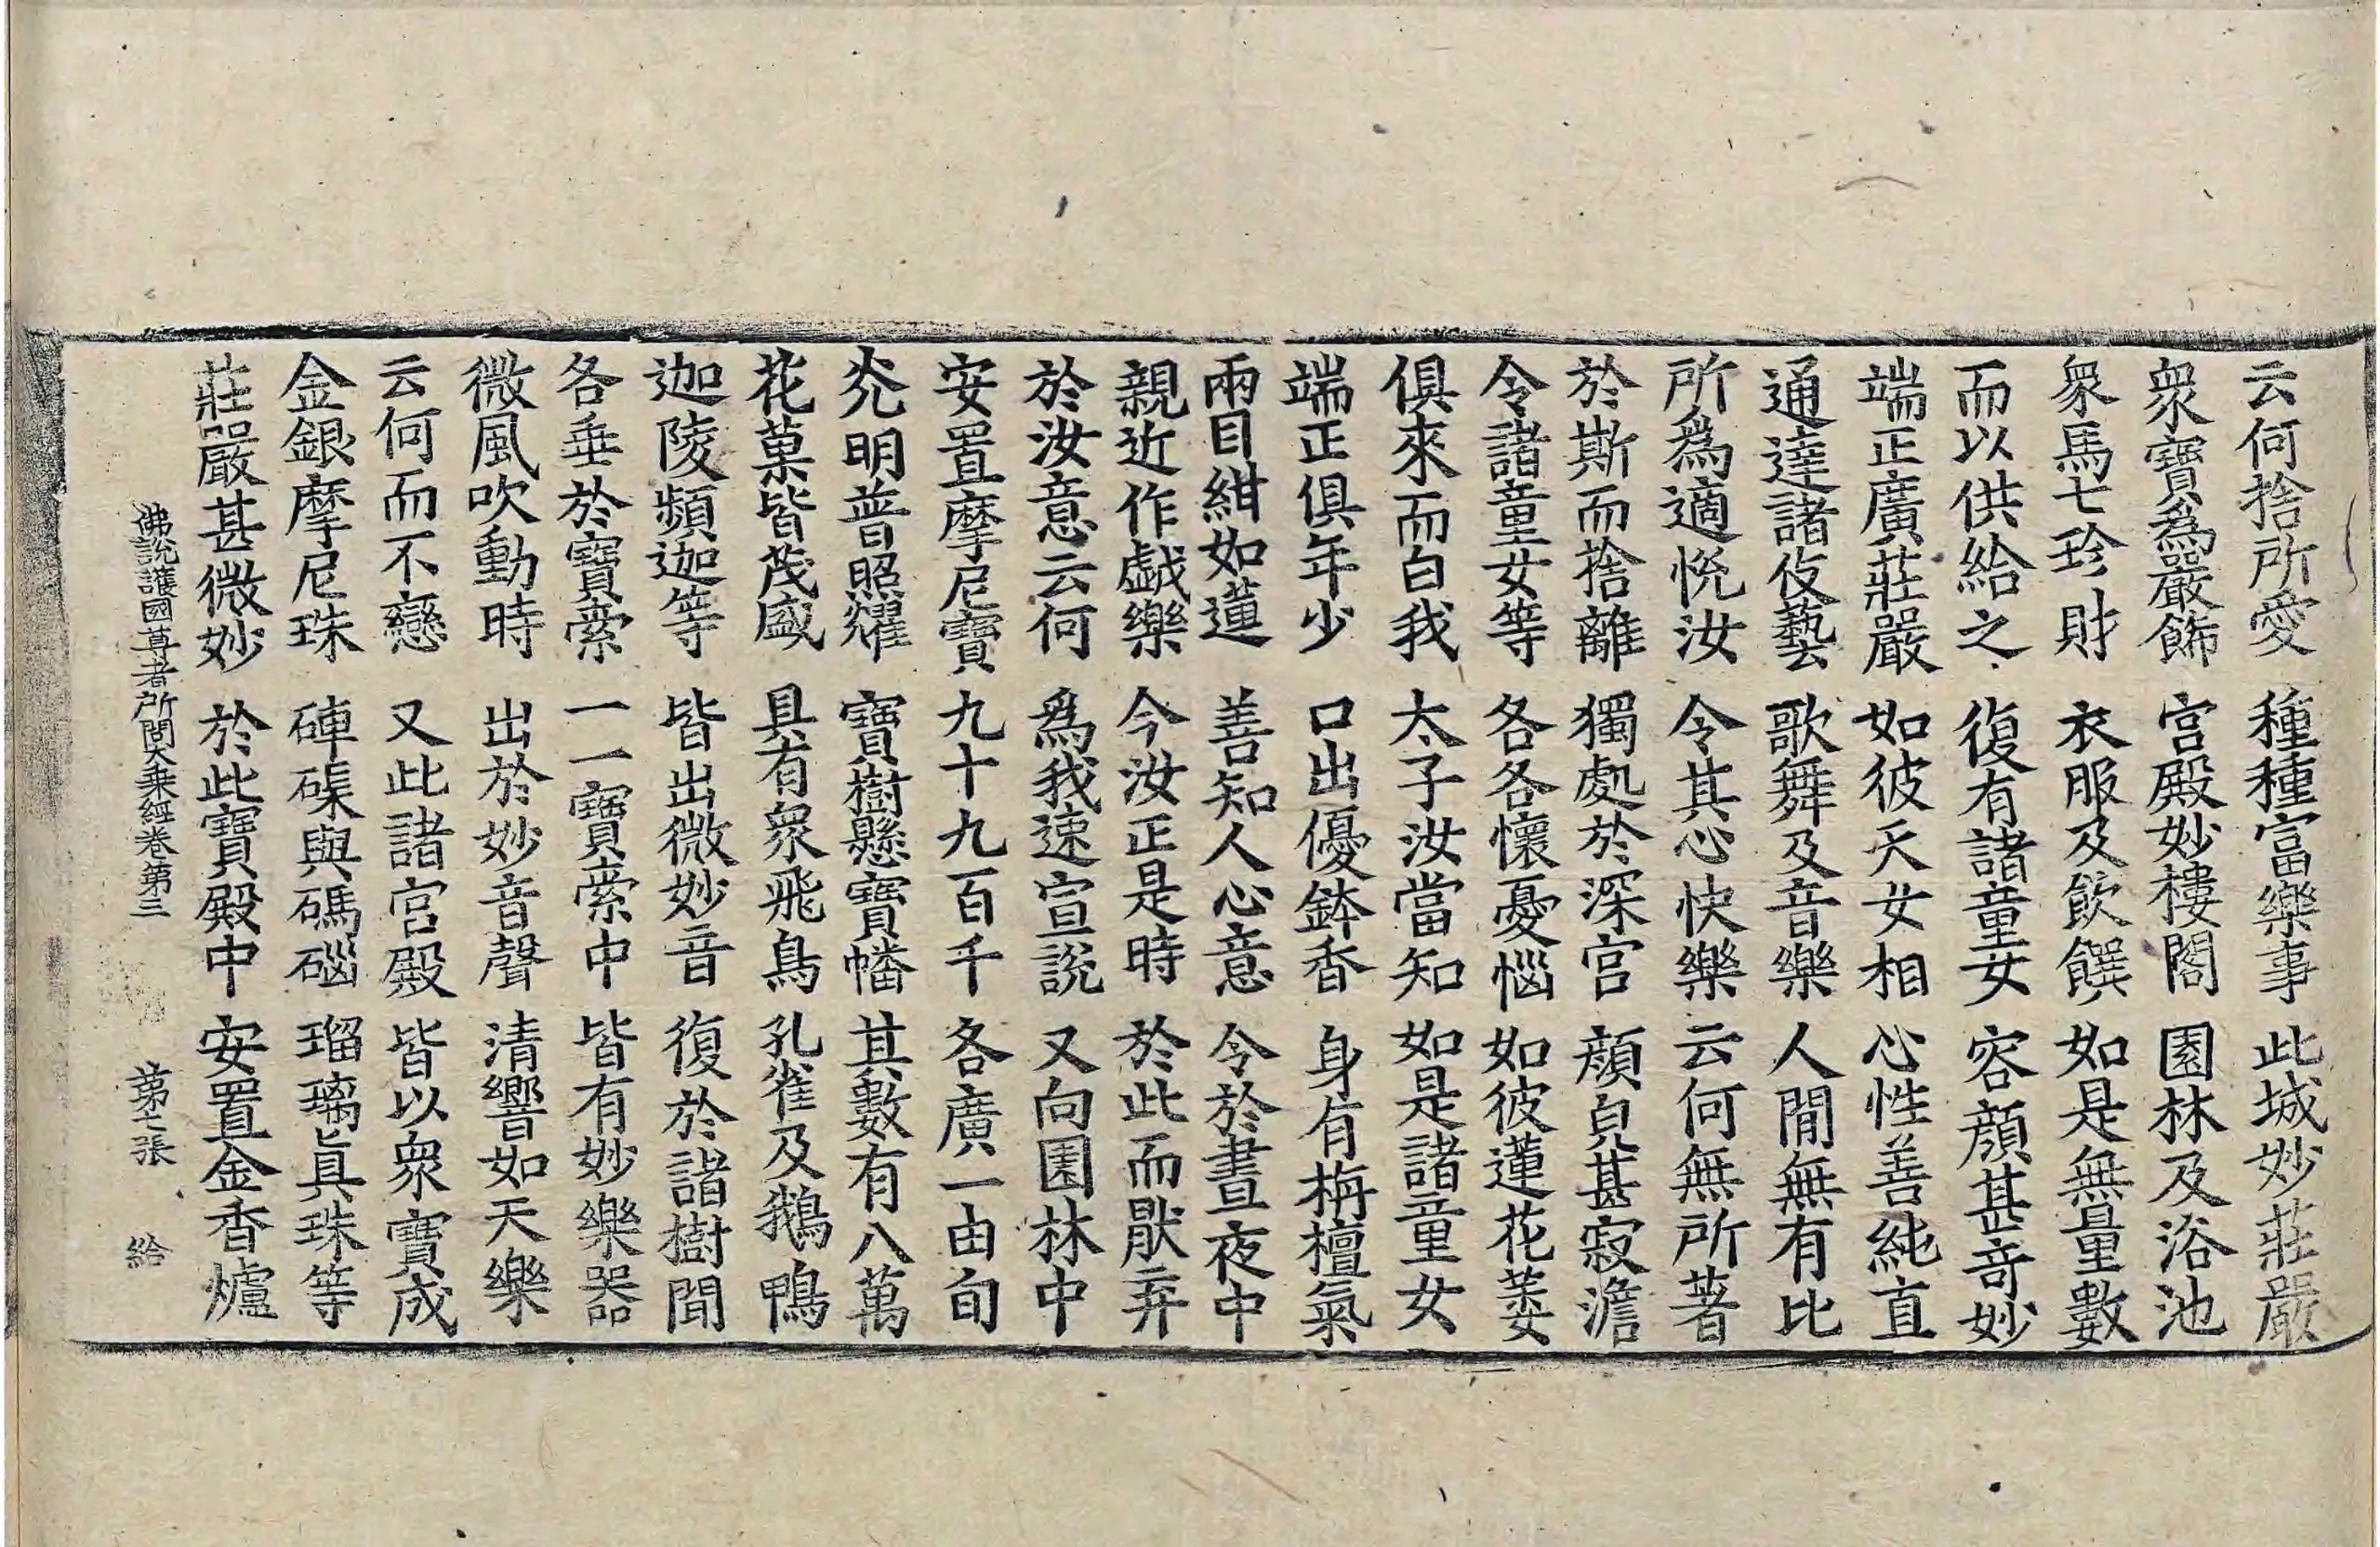 云何捨所愛　種種富樂事　此城妙莊嚴
衆寶為嚴飾　宮殿妙樓閣　園林及浴池
衆馬七珍財　衣服及飲饌　如是無量數
而以供給之　復有諸童女　容顏甚奇妙
端正廣莊嚴　如彼天女相　心性善純直
通達諸伎藝　歌舞及音樂　人間無有比
所為適悅汝　令其心快樂　云何無所著
於斯而捨離　獨處於深宮　顏皃甚寂澹
令諸童女等　各各懷憂惱　如彼蓮花萎
俱來而白我　太子汝當知　如是諸童女
端正俱年少　口出優鉢香　身有栴檀氣
兩目紺如蓮　善知人心意　令於晝夜中
親近作戱樂　今汝正是時　於此而猒弃
於汝意云何　為我速宣說　又向園林中
安置摩尼寶　九十九百千　各廣一由旬
灮明普照耀　寶樹懸寶幡　其數有八萬
花菓皆茂盛　具有衆飛鳥　孔雀及鵝鴨
迦陵頻迦等　皆出微妙音　復於諸樹間
各垂於寶索　一一寶索中　皆有妙樂器
微風吹動時　出於妙音聲　清響如天樂
云何而不戀　又此諸宮殿　皆以衆寶成
金銀摩尼珠　硨磲與碼碯　瑠璃真珠等
莊嚴甚微妙　於此寶殿中　安置金香爐
佛說護國尊者所問大乘經卷第三　第七張　給